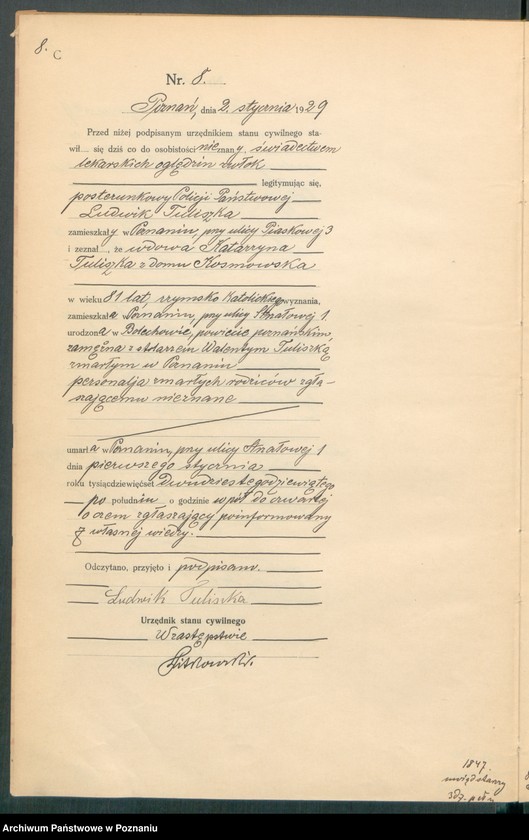 8. C
Nr. 8.
Poznań, dnia 2. stycznia 1929
Przed niżej podpisanym urzędnikiem stanu cywilnego sta-
wił się dziś co do osobistości nieznany, świadectwem
lekarskich oględzin zwłok
legitymując się,
posterunkowy Policji Państwowej
Ludwik Tuliszka
zamieszkały w Poznaniu, przy ulicy Piaskowej 3
i zeznał, że wdowa Katarzyna
Tuliszka z domu Kosmowska
w wieku 81 lat, rzymsko katolickiego wyznania,
zamieszkała Poznaniu, przy ulicy 1
urodzona w Bolechowie, powiecie poznańskim,
zamężna z stolarzem Walentym Tuliszką
zmarłym w Poznaniu
personalja zmarłych rodziców zgła-
szającemu nieznane
umarła w Poznaniu, przy ulicy 1
dnia pierwszego stycznia
roku tysiącdziewięćset dwudziestegodziewiątego
po południu o godzinie wpół do czwartej
o czem zgłaszający poinformowany
z własnej wiedzy.
Odczytano, przyjęto i podpisano.
Ludwik Tuliszka
Urzędnik stanu cywilnego
W zastępstwie
1847
Archiwum Państwowe w Poznaniu